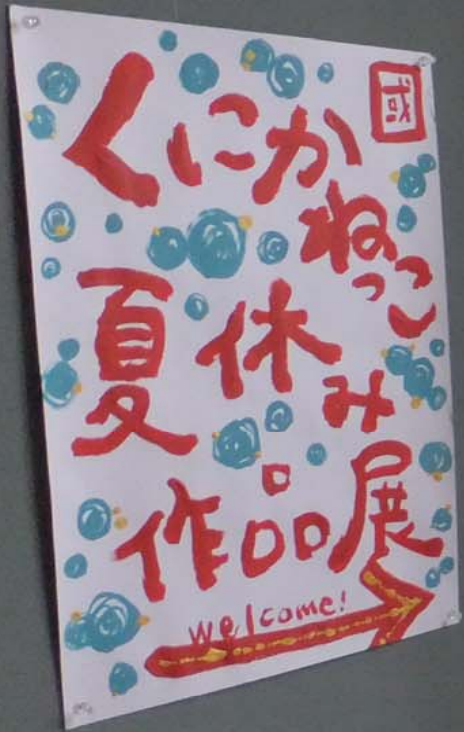 くにか
ねっこ
夏休み
作品展
welcome!